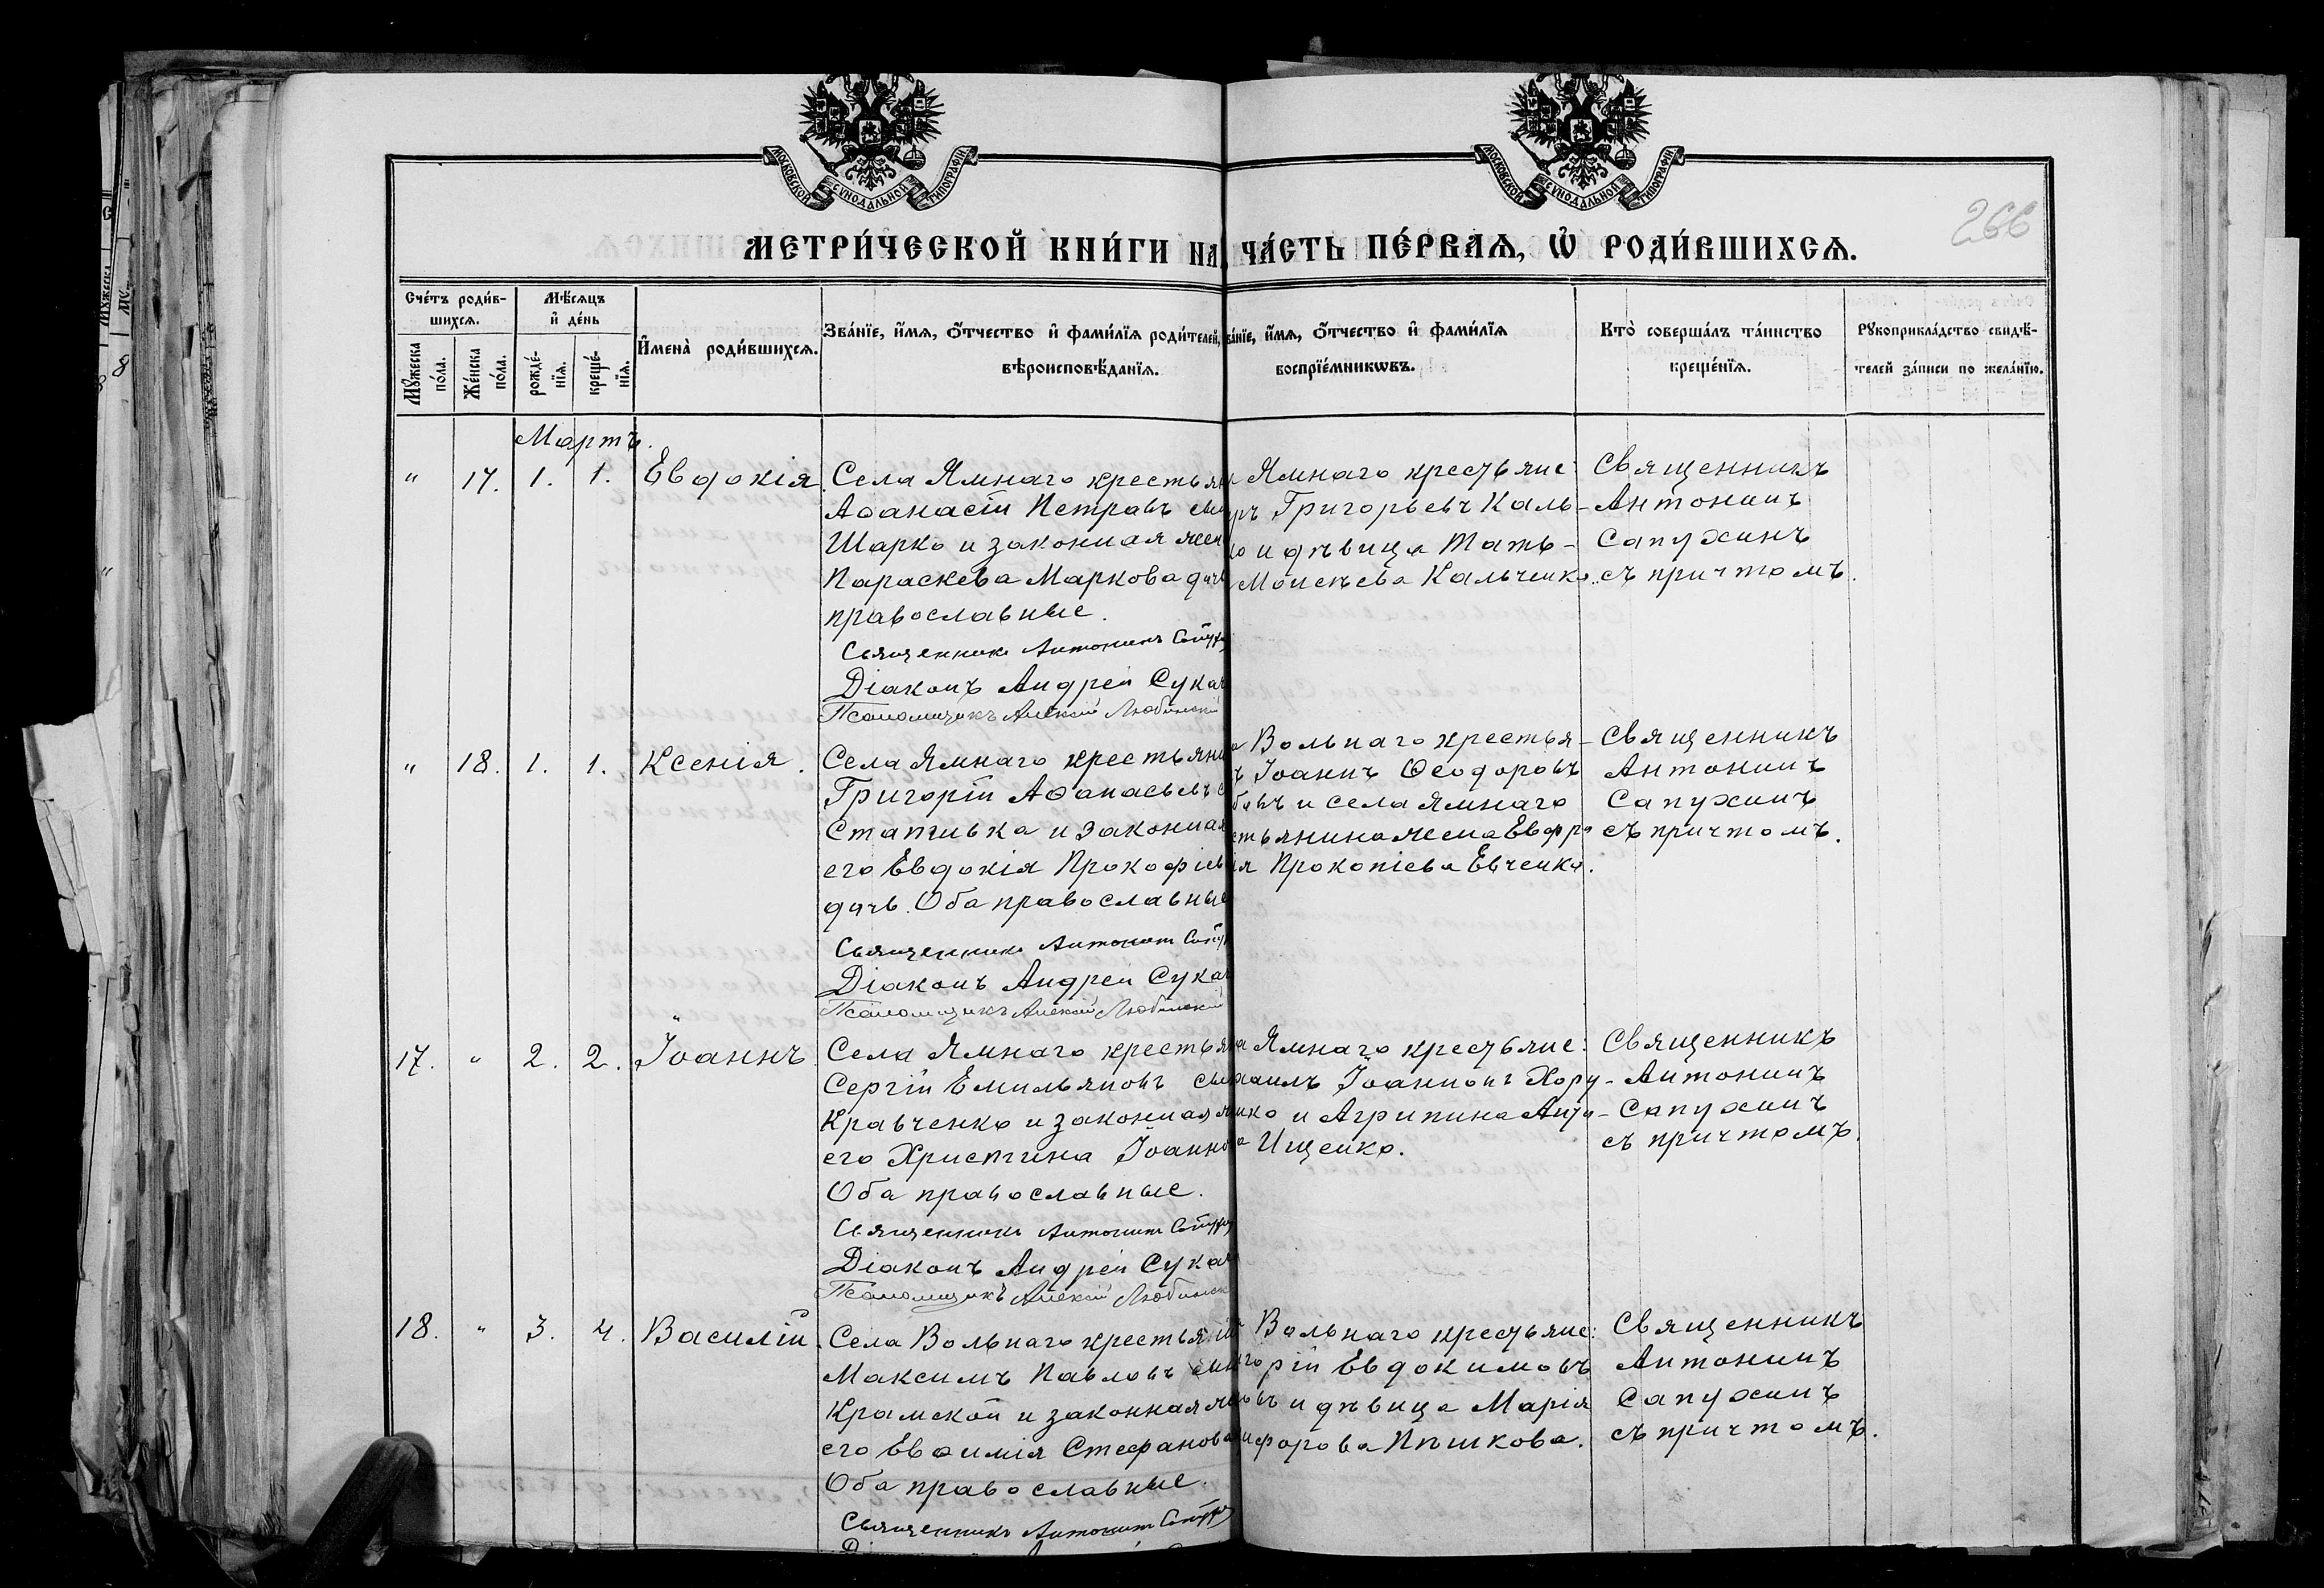 МОСКОВСКОЙ СУНОДАЛЬНОЙ ТИПОГРАФІИ
МОСКОВСКОЙ СУНОДАЛЬНОЙ ТИПОГРАФІИ
266
МЕТРИ́ЧЕСКОЙ КНИ́ГИ НА ЧА́СТЬ ПЕ́РВАѦ, Ѡ҆ РОДИ́ВШИХСѦ.
Сче́тъ роди́в-
шихсѧ.
Мꙋ́жеска по́ла.
Же́нска по́ла.
Мѣ́сѧцъ
и҆ де́нь
рожде́-
нїѧ.
креще́-
нїѧ.
И҆мена̀ роди́вшихсѧ.
Зва́нїе, и҆́мѧ, ѻ҆́тчество и҆ фами́лїѧ роди́телей,
вѣроисповѣ́данїѧ.
ва́нїе, и҆́мѧ, ѻ҆́тчество и҆ фами́лїѧ
воспрїе́мникѡвъ.
Кто̀ соверша́лъ та́инство
креще́нїѧ.
Рꙋкоприкла́дство свидѣ́-
телей за́писи по жела́нїю.
Мартъ.
" 17. 1. 1. Евдокія.
Села Ямнаго крестьян
Аѳанасій Петровъ
Шарко и законная жен
Параскева Маркова
православные.
Священникъ Антонинъ
Діаконъ Андрей Сукач
Псаломщикъ Алексій Любинскій
Ямнаго крестьяне:
Григорьевъ Каль-
и дѣвица Тать-
Моисеева Кальченко.
Священникъ
Антонинъ
Сапухинъ
съ причтомъ.
" 18. 1. 1. Ксенія.
Села Ямнаго крестьяни
Григорій Аѳанасьевъ с
Стативка и законная
его Евдокія Прокофіев
дачь. Оба православные
Священникъ Антонинъ
Діаконъ Андрей Сукач
Псаломщикъ Алексій Любинскій
Вольнаго крестья-
Іоаннъ Ѳеодоровъ
и села Ямнаго
стьянина жена Евфро
Прокопіева Евченко.
Священникъ
Антонинъ
Сапухинъ
съ причтомъ.
17. " 2. 2. Іоаннъ
Села Ямнаго крестья
Сергій Емильяновъ
Кравченко и законная
его Христина Іоаннов
Оба православные.
Священникъ Антонинъ
Діаконъ Андрей Сукач
Псаломщикъ Алексій Любинск
Ямнаго крестьяне:
хаилъ Іоанновъ Хору-
и Агрипина
Ищенко.
Священникъ
Антонинъ
Сапухинъ
съ причтомъ.
18. " 3. 4. Василій.
Села Вольнаго крестья
Максимъ Павловъ
Крамской и законная
его Евѳимія Стефанова
Оба православные.
Священникъ Антонинъ
Вольнаго крестьяне:
горій Евдокимовъ
и дѣвица Марія
Пѣшкова.
Священникъ
Антонинъ
Сапухинъ
съ причтомъ.